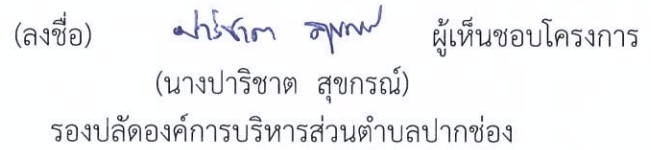 (ลงชื่อ) ปาริชาต สุขกรณ์ ผู้เห็นชอบโครงการ
(นางปาริชาต สุขกรณ์)
รองปลัดองค์การบริหารส่วนตำบลปากช่อง